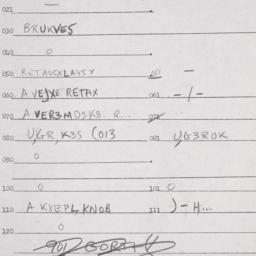 021 —
030 BRUKVES
040 O
050 RETASXLAVTY 051 —
060 A VEJXE RETAX 061 -/-
070 A VER3MDSK3. R...
U,GR, K3S (013 081 U,G3ROK
090 O
100 O 101 O
110 A KYEPL, KNOB 111 )-H...
120 O